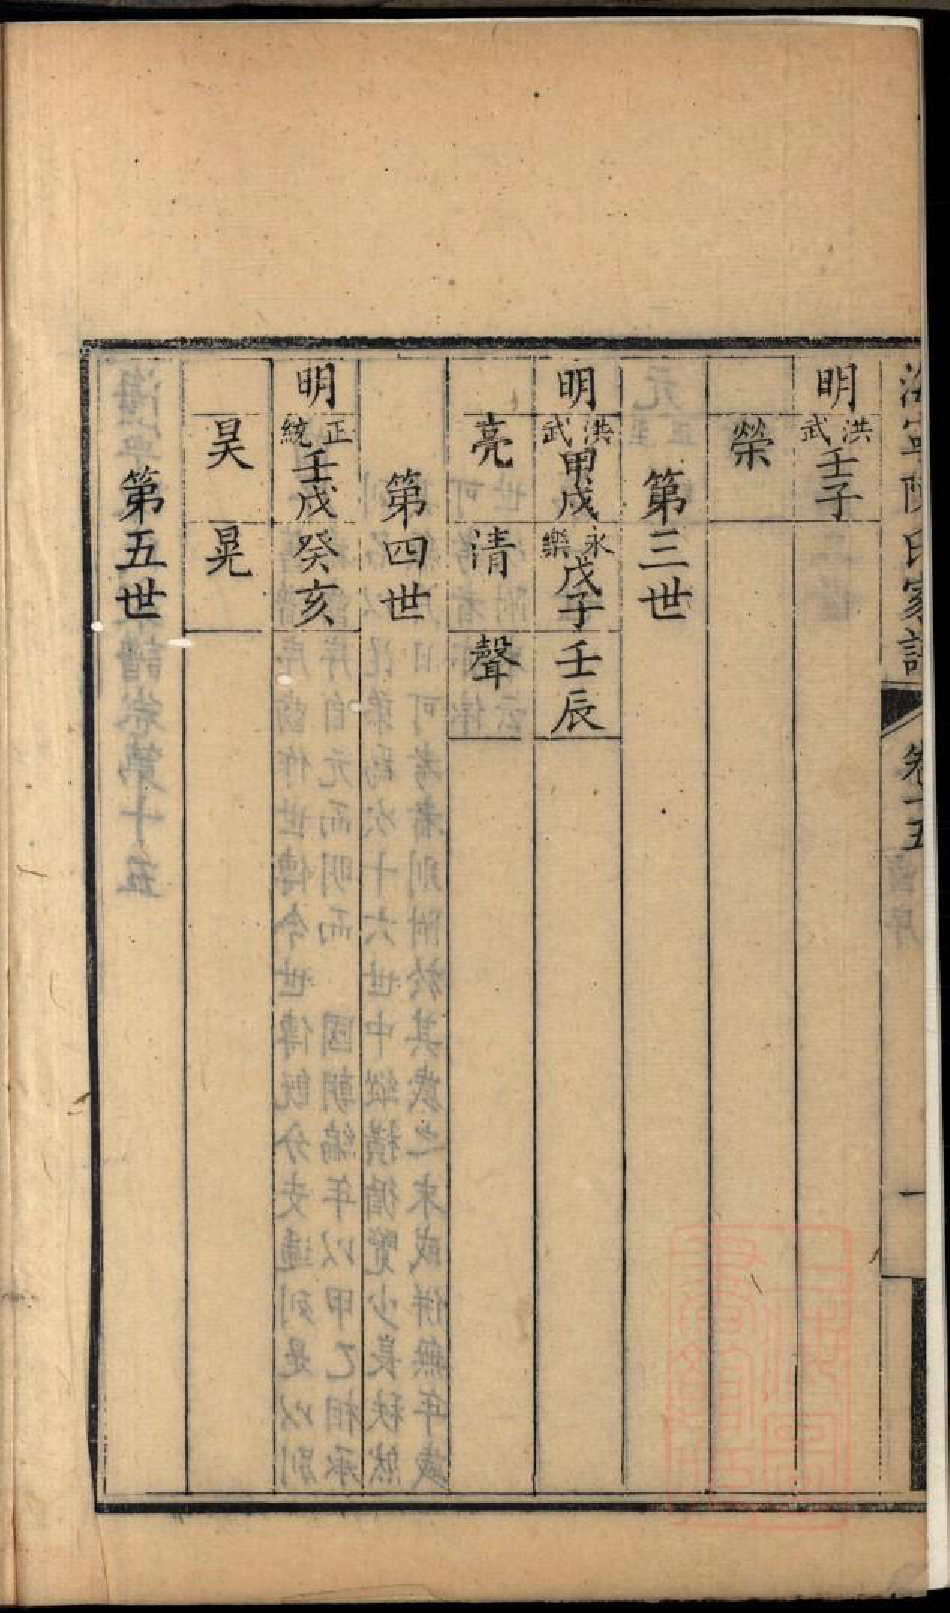 海寧陳氏家譜 卷十五 一
明 洪武壬子
榮
第三世
明 洪武甲戌 永樂戊子 壬辰
亮 清 聲
第四世
明 正統壬戌 癸亥
昊 晃
第五世